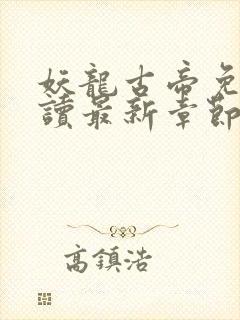 妖龍古帝免
讀最新章節
高鎮浩